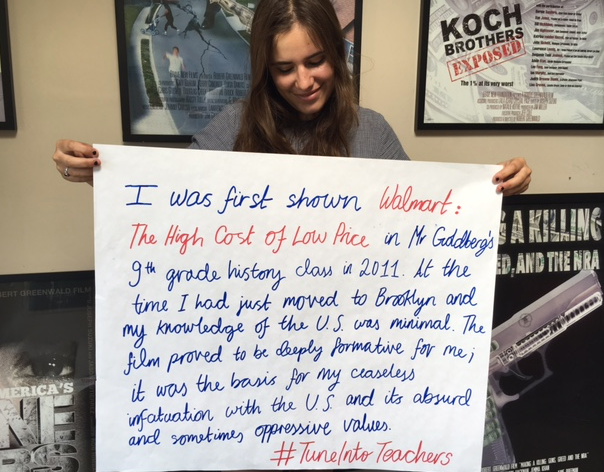 KOCH
BROTHERS
EXPOSED
The 1% at its very worst
I was first shown Walmart:
The High Cost of Low Price in Mr Goldberg's
9th grade history class in 2011. At the
time I had just moved to Brooklyn and
my knowledge of the U.S. was minimal. The
film proved to be deeply formative for me;
it was the basis for my ceaseless
infatuation with the U.S. and its absurd
and sometimes oppressive values.
#TuneIntoTeachers
ERT GREENWALD FILM
MERICA'S
A KILLING
AND THE NRA